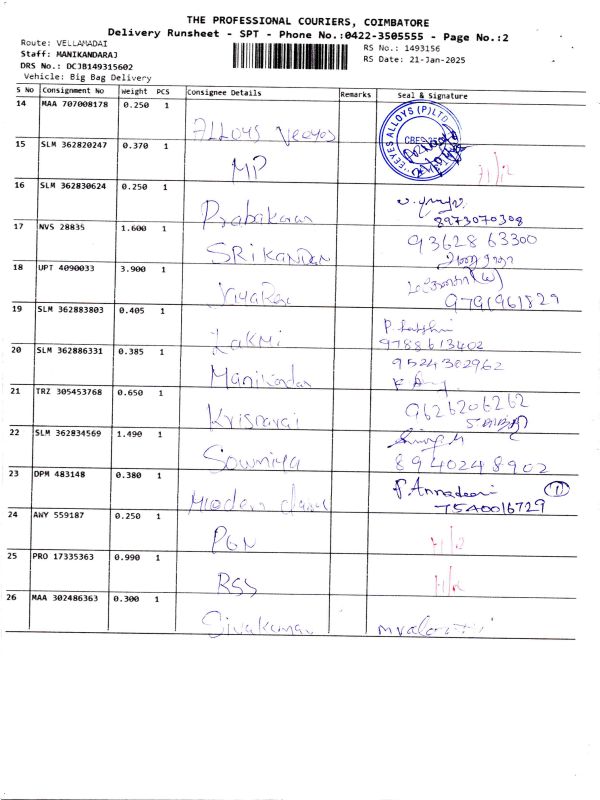 THE PROFESSIONAL COURIERS, COIMBATORE
Delivery Runsheet - SPT - Phone No.:0422-3505555 - Page No.:2
Route: VELLAMADAI
RS No.: 1493156
Staff: MANIKANDARAJ
RS Date: 21-Jan-2025
DRS No.: DCJB149315602
Vehicle: Big Bag Delivery
S No Consignment No Weight PCS Consignee Details Remarks Seal & Signature
14 MAA 707008178 0.250 1
Alloys Veeyes
EEYES ALLOYS (P) LTD
15 SLM 362820247 0.370 1
MP
16 SLM 362830624 0.250 1
Prabakaran
8973070308
17 NVS 28835 1.600 1
SRIKANDAN 93628 63300
18 UPT 4090033 3.900 1
9791961829
19 SLM 362883803 0.405 1
Lakmi 9788613402
20 SLM 362886331 0.385 1
9524302962
Manikandan
21 TRZ 305453768 0.650 1
9626206262
22 SLM 362834569 1.490 1
Sowmiya 8940248902
23 DPM 483148 0.380 1
P. Annadeavi 1
7540016729
24 ANY 559187 0.250 1
PGN
25 PRO 17335363 0.990 1
RSS
26 MAA 302486363 0.300 1
Sivakumar